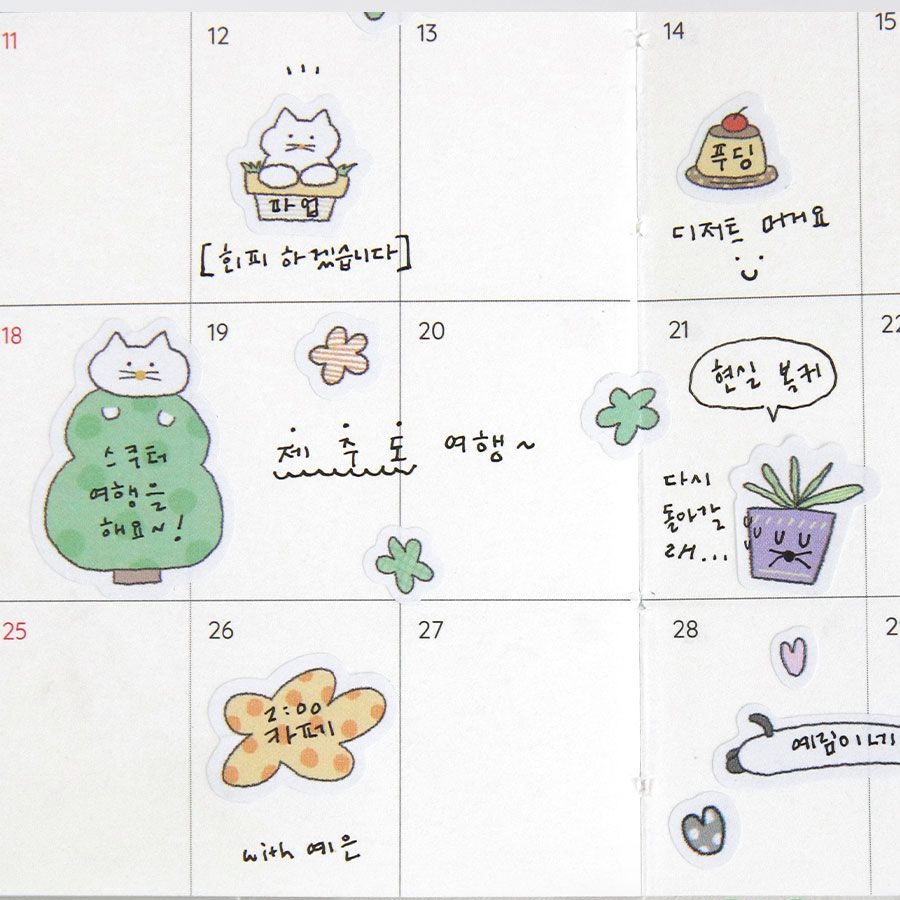 11
12
13
14
15
파업
[회피 하겠습니다]
푸딩
디저트 머거요
18
19
20
21
22
스쿠터
여행을
해요~!
제 주 도 여행~
현실 복귀
다시
돌아갈
래...
25
26
27
28
2:00
with 예은
예림이